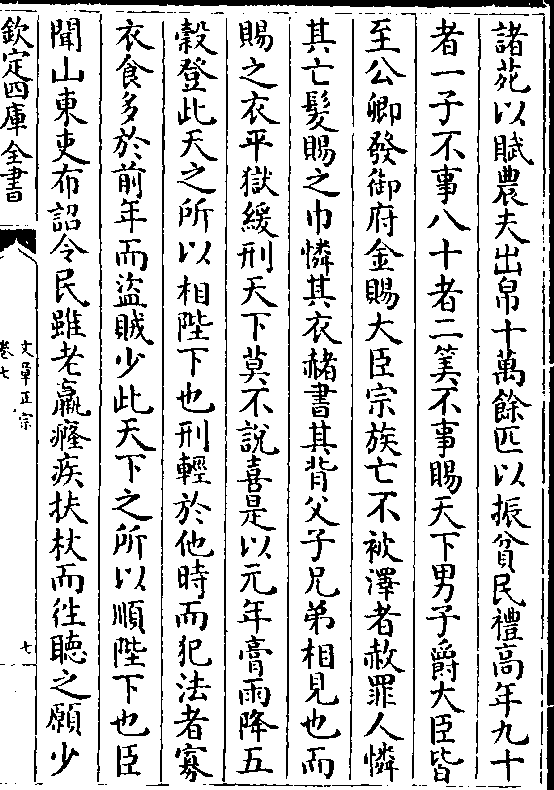 諸苑以賦農夫出帛十萬餘匹以振貧民禮高年九十
者一子不事八十者二筭不事賜天下男子爵大臣皆
至公卿發御府金賜大臣宗族亡不被澤者赦罪人憐
其亡髮賜之巾憐其衣赭書其背父子兄弟相見也而
賜之衣平獄緩刑天下莫不說喜是以元年膏雨降五
穀登此天之所以相陛下也刑輕於他時而犯法者寡
衣食多於前年而盜賊少此天下之所以順陛下也臣
聞山東吏布詔令民雖老羸癃疾扶杖而徃聽之願少
欽定四庫全書
文章正宗
卷七
七